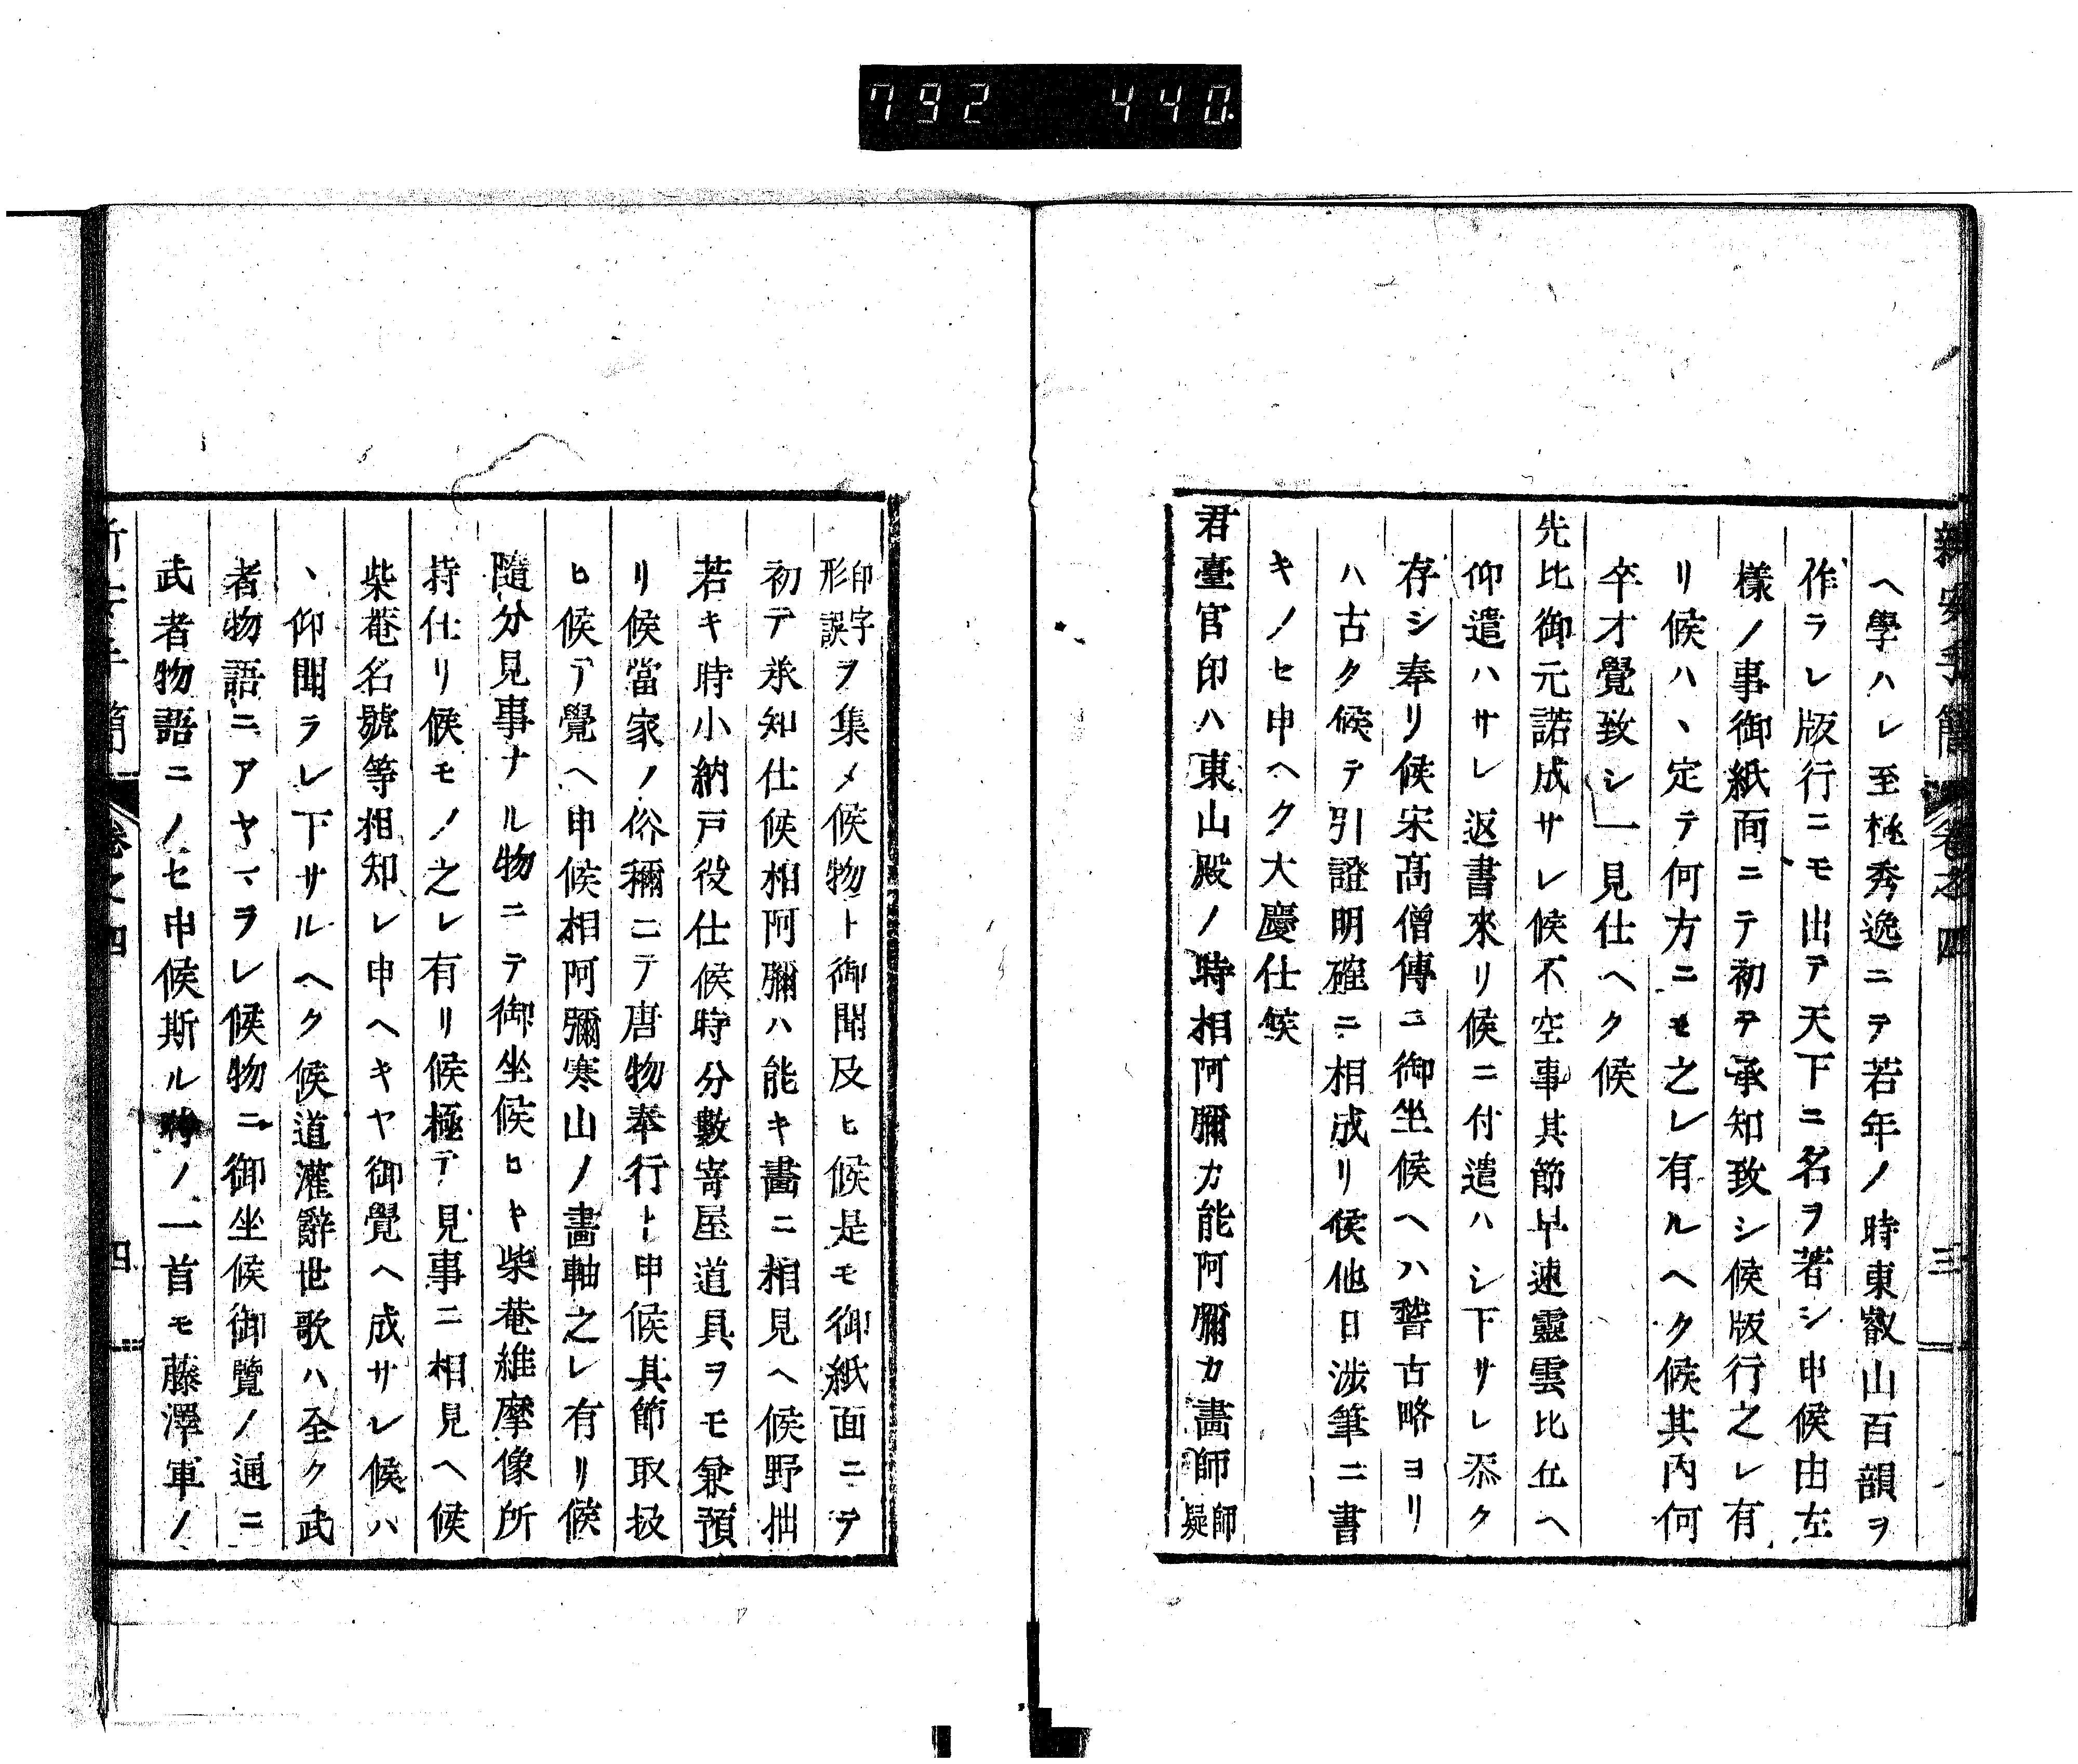 792 440.
新安手簡 卷之四 三
ヘ學ハレ至極秀逸ニテ若年ノ時東叡山百韻ヲ
作ラレ版行ニモ出テ天下ニ名ヲ著シ申候由左
樣ノ事御紙面ニテ初テ承知致シ候版行之レ有
リ候ハヽ定テ何方ニモ之レ有ルヘク候其内何
卒才覺致シ一見仕ヘク候
先比御元諾成サレ候不空事其節早速靈雲比丘ヘ
仰遣ハサレ返書來リ候ニ付遣ハシ下サレ忝ク
存シ奉リ候宋高僧傳ニ御坐候ヘハ稽古略ヨリ
ハ古ク候テ引證明確ニ相成リ候他日渉筆ニ書
キノセ申ヘク大慶仕候
君臺官印ハ東山殿ノ時相阿彌カ能阿彌カ畵師師疑
印字形誤ヲ集メ候物ト御聞及ヒ候是モ御紙面ニテ
初テ承知仕候相阿彌ハ能キ畵ニ相見ヘ候野拙
若キ時小納戸役仕候時分數寄屋道具ヲモ兼預
リ候當家ノ俗稱ニテ唐物奉行ト申候其節取扱
ヒ候テ覺ヘ申候相阿彌寒山ノ畵軸之レ有リ候
隨分見事ナル物ニテ御坐候ヒキ柴菴維摩像所
持仕リ候モノ之レ有リ候極テ見事ニ相見ヘ候
柴菴名號等相知レ申ヘキヤ御覺ヘ成サレ候ハ
ヽ仰聞ラレ下サルヘク候道灌辭世歌ハ全ク武
者物語ニアヤマラレ候物ニ御坐候御覽ノ通ニ
武者物語ニノセ申候斯ル時ノ一首モ藤澤軍ノ
新安手簡 卷之四 四